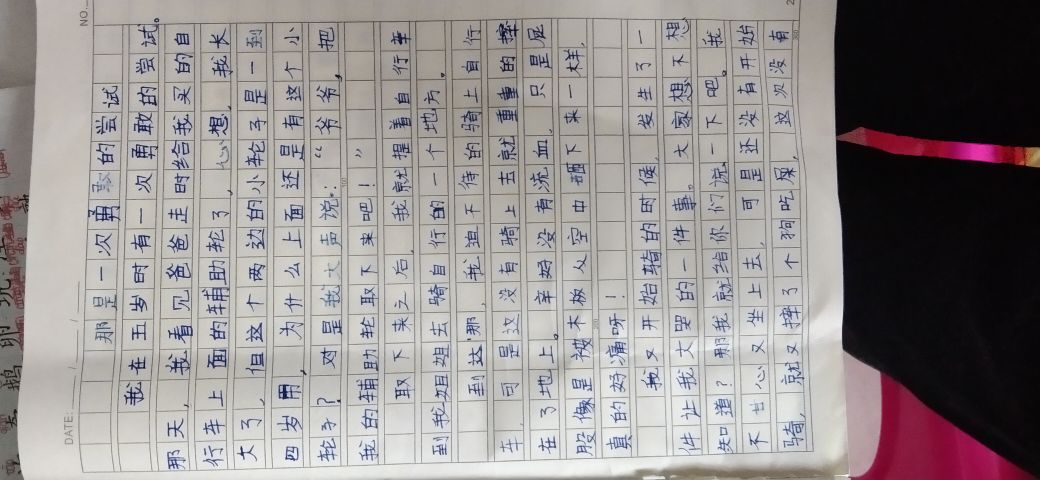 NO.
DATE: / /
那是一次勇敢的尝试
我在五岁时有一次勇敢的尝试。
那天,我看见爸爸走时给我买的自
行车上面的辅助轮了,心想,我长
大了,但这个两边的小轮子是一到
四岁用,为什么上面还是有这个小
轮子?对是我大声说:“爷爷,把
我的辅助轮取下来吧!”
取下来之后,我就握着自行车
到我姐姐去骑自行的一个地方。
到达那,我迫不待的骑上自行
车,可是这没有骑上去就重重的摔
在了地上。幸好没有流血,只是屁
股像是被木板从空中砸下来一样,
真的好痛呀!
我又开始骑的时候,发生了一
件让我大哭的一件事。大家想不想
知道?那我就给你们说一下吧。我
不甘心又坐上去,可是还没有开始
骑,就又摔了个狗吃屎,这次没有